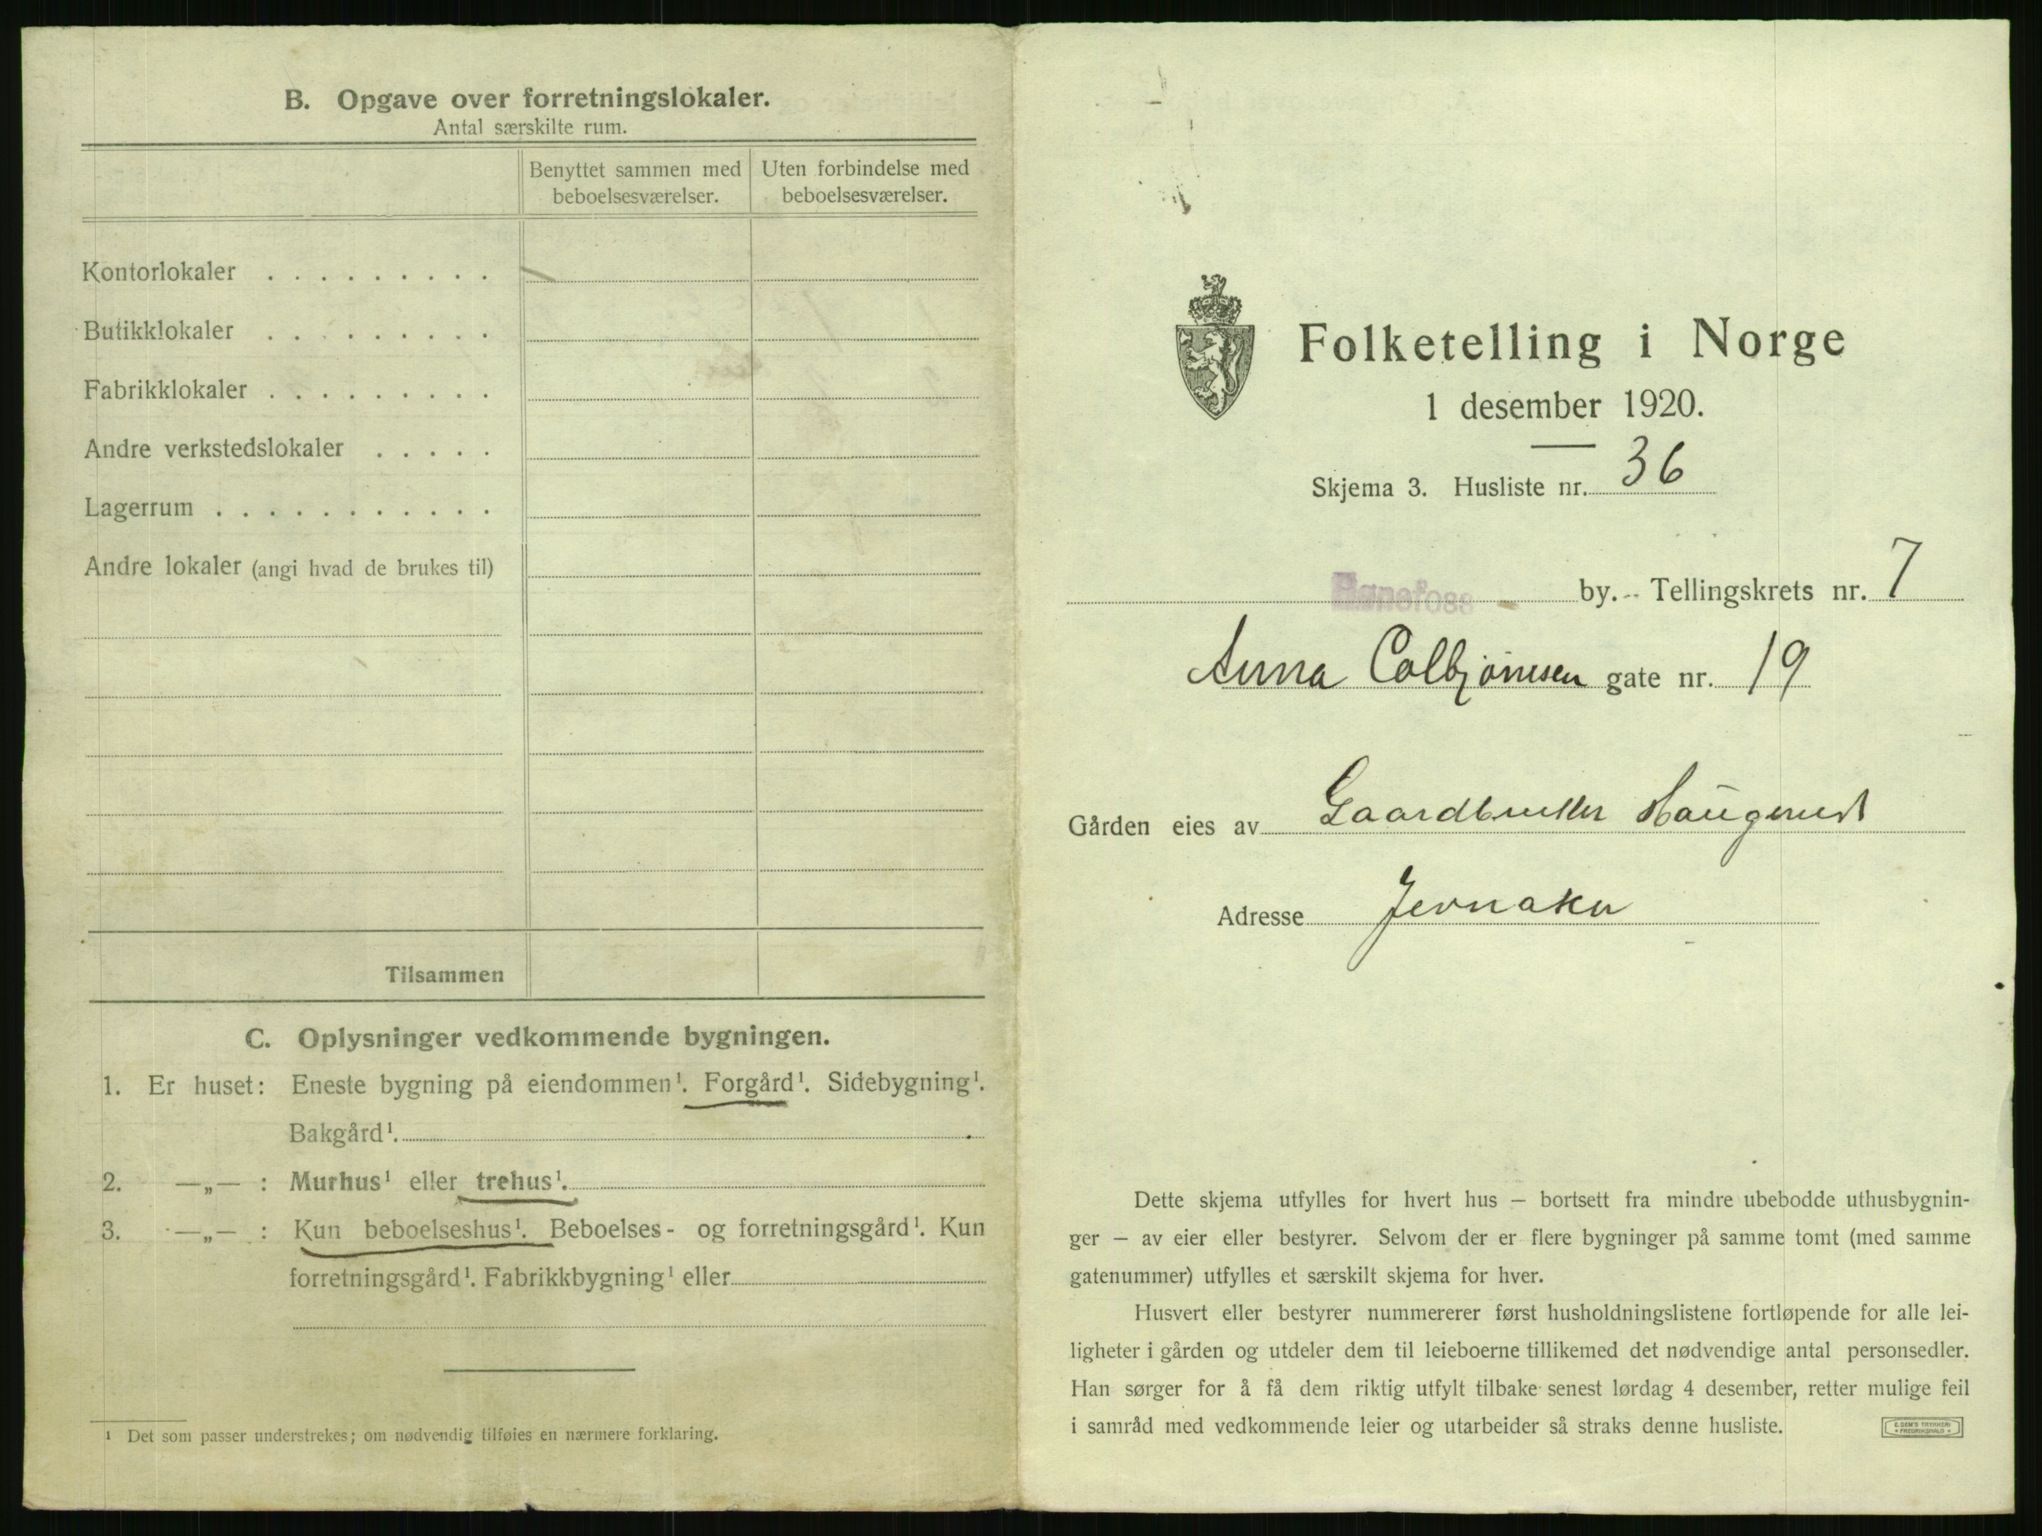 B. Opgave over forretningslokaler.
Antal særskilte rum.
Benyttet sammen med beboelsesværelser.
Uten forbindelse med beboelsesværelser.
Kontorlokaler . . . . . . . . .
Butikklokaler . . . . . . . . .
Fabrikklokaler . . . . . . . . .
Andre verkstedslokaler . . . . .
Lagerrum . . . . . . . . . . .
Andre lokaler (angi hvad de brukes til)
Tilsammen
C. Oplysninger vedkommende bygningen.
1. Er huset: Eneste bygning på eiendommen¹. Forgård¹. Sidebygning¹.
Bakgård¹.
2. —„— : Murhus¹ eller trehus¹.
3. —„— : Kun beboelseshus¹. Beboelses- og forretningsgård¹. Kun
forretningsgård¹. Fabrikkbygning¹ eller
¹ Det som passer understrekes; om nødvendig tilføies en nærmere forklaring.
Folketelling i Norge
1 desember 1920.
Skjema 3. Husliste nr. 36
Hønefoss by. - Tellingskrets nr. 7
Anna Colbjørnsen gate nr. 19
Gården eies av Gaardbruker Haugerud
Adresse Jevnaker
Dette skjema utfylles for hvert hus — bortsett fra mindre ubebodde uthusbygnin-
ger — av eier eller bestyrer. Selvom der er flere bygninger på samme tomt (med samme
gatenummer) utfylles et særskilt skjema for hver.
Husvert eller bestyrer nummererer først husholdningslistene fortløpende for alle lei-
ligheter i gården og utdeler dem til leieboerne tillikemed det nødvendige antal personsedler.
Han sørger for å få dem riktig utfylt tilbake senest lørdag 4 desember, retter mulige feil
i samråd med vedkommende leier og utarbeider så straks denne husliste.
E. SEM'S TRYKKERI
FREDRIKSHALD